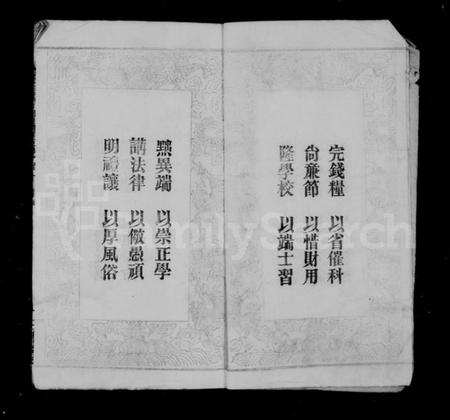 完錢糧 以省催科
尙亷節 以惜財用
隆學校 以端士習
黜異端 以崇正學
講法律 以儆愚頑
明禮讓 以厚風俗
FamilySearch